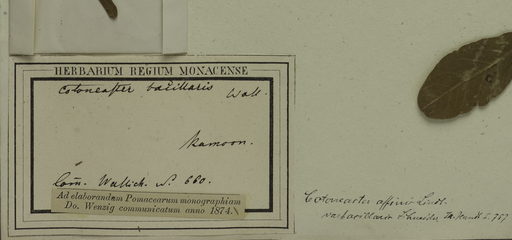 HERBARIUM REGIUM MONACENSE
Cotoneaster bacillaris Wall.
Kamoon.
Com. Wallich. N. 660.
Ad elaborandam Pomacearum monographiam
Do. Wenzig communicatum anno 1874.
Cotoneaster affinis Lindl.
var bacillaris